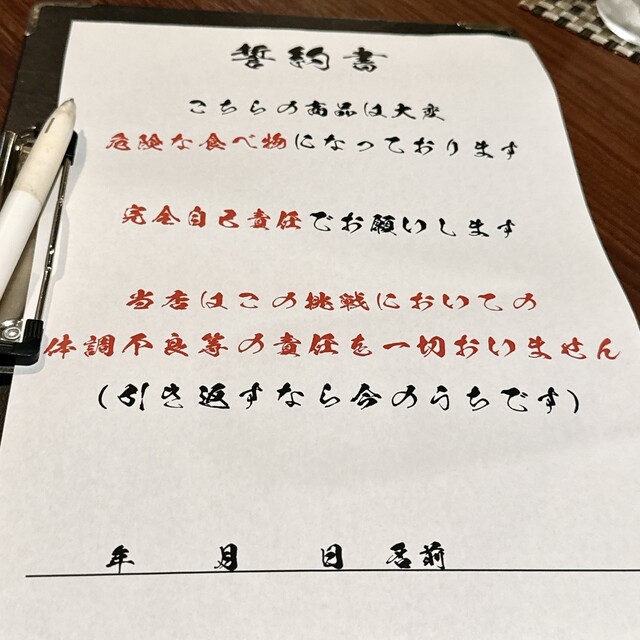 誓約書
こちらの商品は大変
危険な食べ物になっております
完全自己責任でお願いします
当店はこの挑戦においての
体調不良等の責任を一切おいません
(引き返すなら今のうちです)
年 月 日 名前